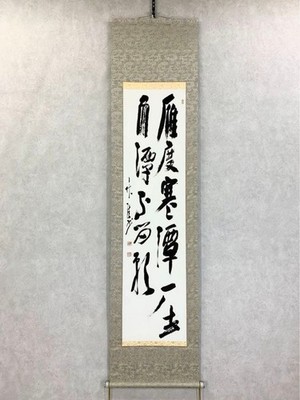 雁度寒潭去
而潭不留影